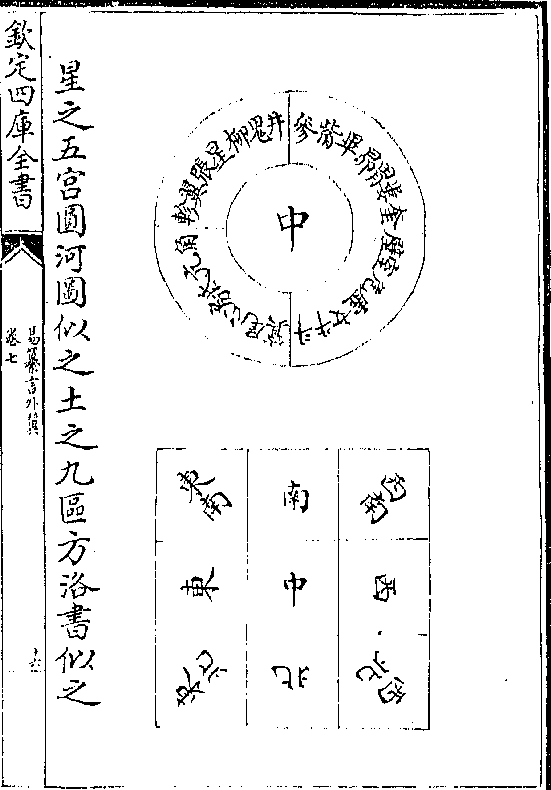 角亢氐房心尾箕
斗牛女虛危室壁
奎婁胃昴畢觜參
井鬼柳星張翼軫
中
西南 南 東南
西 中 東
西北 北 東北
星之五宮圓河圖似之土之九區方洛書似之
欽定四庫全書
易纂言外翼
卷七
十六